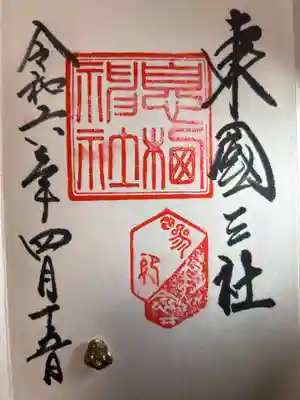 東國三社
息栖
神社
令和六年四月十五日